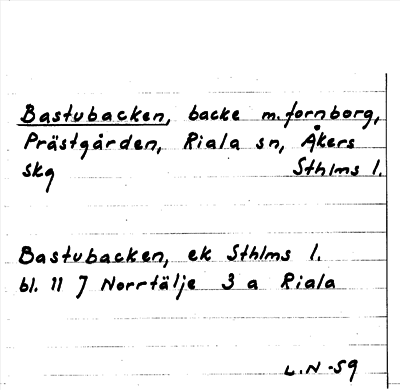 Bastubacken, backe m. fornborg,
Prästgården, Riala sn, Åkers
skg Sthlms l.
Bastubacken, ek Sthlms l.
bl. 11 J Norrtälje 3 a Riala
L.N -59